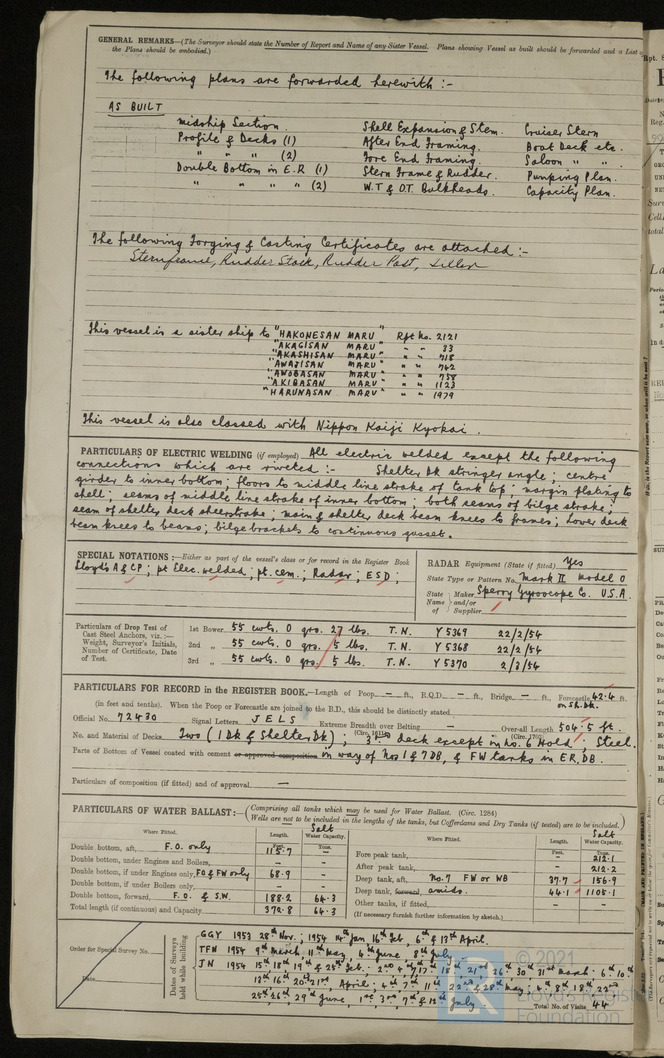 GENERAL REMARKS—(The Surveyor should state the Number of Report and Name of any Sister Vessel. Plans showing Vessel as built should be forwarded and a List of
the Plans should be embodied.)
The following plans are forwarded herewith :-
AS BUILT
Midship Section. Shell Expansion & Stem. Cruiser Stern
Profile & Decks (1) After End Framing. Boat Deck etc.
" " " (2) Fore End Framing. Saloon " " .
Double Bottom in E.R (1) Stern Frame & Rudder. Pumping Plan.
" " " " (2) W.T & O.T. Bulkheads. Capacity Plan.
The following Forging & Casting Certificates are attached :-
Sternframe, Rudder Stock, Rudder Post, Tiller
This vessel is a sister ship to "HAKONESAN MARU" Rpt No. 2121
"AKAGISAN MARU" " " 33
"AKASHISAN MARU" " " 718
"AWAJISAN MARU" " " 742
"AWOBASAN MARU" " " 738
"AKIBASAN MARU" " " 1123
"HARUNASAN MARU" " " 1979
This vessel is also classed with Nippon Kaiji Kyokai .
PARTICULARS OF ELECTRIC WELDING (if employed) All electric welded except the following
connections which are riveted :- Shelter Dk stringer angle ; centre
girder to inner bottom ; floors to middle line strake of tank top ; margin plating to
shell ; seams of middle line strake of inner bottom ; both seams of bilge strake ;
seam of shelter deck sheerstrake ; main & shelter deck beam knees to frames ; lower deck
beam knees to beams ; bilge brackets to continuous gusset.
SPECIAL NOTATIONS :—Either as part of the vessel's class or for record in the Register Book
Lloyd's A & CP ; pt Elec. welded ; pt. cem. ; Radar ; ESD ;
RADAR Equipment (State if fitted) Yes
State Type or Pattern No. Mark II Model 0
State Name of Maker and/or Supplier Sperry Gyroscope Co. U.S.A.
Particulars of Drop Test of Cast Steel Anchors, viz. :— Weight, Surveyor's Initials, Number of Certificate, Date of Test.
1st Bower 55 cwts. 0 qrs. 27 lbs. T.N. Y 5369 22/2/54
2nd " 55 cwts. 0 qrs. 5 lbs. T.N. Y 5368 22/2/54
3rd " 55 cwts. 0 qrs. 5 lbs. T.N. Y 5370 2/3/54
PARTICULARS FOR RECORD in the REGISTER BOOK.—Length of Poop — ft., R.Q.D. — ft., Bridge — ft., Forecastle 42.4 ft.
(in feet and tenths). When the Poop or Forecastle are joined to the B.D., this should be distinctly stated on Sh. Dk.
Official No. 72430 Signal Letters JELS Extreme Breadth over Belting — Over-all Length 504.5 ft.
(Circ. 1611) (Circ. 1702)
No. and Material of Decks Two (1 Dk & Shelter Dk) ; 3rd deck except in No. 6 Hold ; Steel.
Parts of Bottom of Vessel coated with cement or approved composition in way of Nos 1 & 7 DB, & FW tanks in ER, DB.
Particulars of composition (if fitted) and of approval —
PARTICULARS OF WATER BALLAST:—(Comprising all tanks which may be used for Water Ballast. (Circ. 1284)
Wells are not to be included in the lengths of the tanks, but Cofferdams and Dry Tanks (if tested) are to be included.)
Where Fitted. Length. Salt Water Capacity. Where Fitted. Length. Salt Water Capacity.
Feet. Tons. Feet. Tons.
Double bottom, aft, F.O. only 115.7 Fore peak tank, 212.1
Double bottom, under Engines and Boilers, After peak tank, 212.2
Double bottom, if under Engines only, FO & FW only 68.9 Deep tank, aft, No. 7 FW or WB 37.7 156.9
Double bottom, if under Boilers only, Deep tank, forward, amids. 44.1 1108.1
Double bottom, forward, F.O. & S.W. 188.2 64.3 Other tanks, if fitted,
Total length (if continuous) and Capacity 372.8 64.3 (If necessary furnish further information by sketch.)
Order for Special Survey No.
Date
Dates of Surveys held while building
GGY 1953 28th Nov., 1954 14th Jan 16th Feb, 6th & 13th April.
TFN 1954 9th March 11th May, 4th June 8th July
JN 1954 15th 18th 19th & 25th Feb. 2nd 4th 17th 18th 21st 26th 30th 31st March. 6th 10th
13th 16th 20th 21st April ; 4th 7th 11th 22nd & 28th May ; 4th 8th 18th 22nd
25th 26th 29th June, 1st 3rd 7th & 12th July. Total No. of Visits 44
© 2021
Lloyd's Register
Foundation